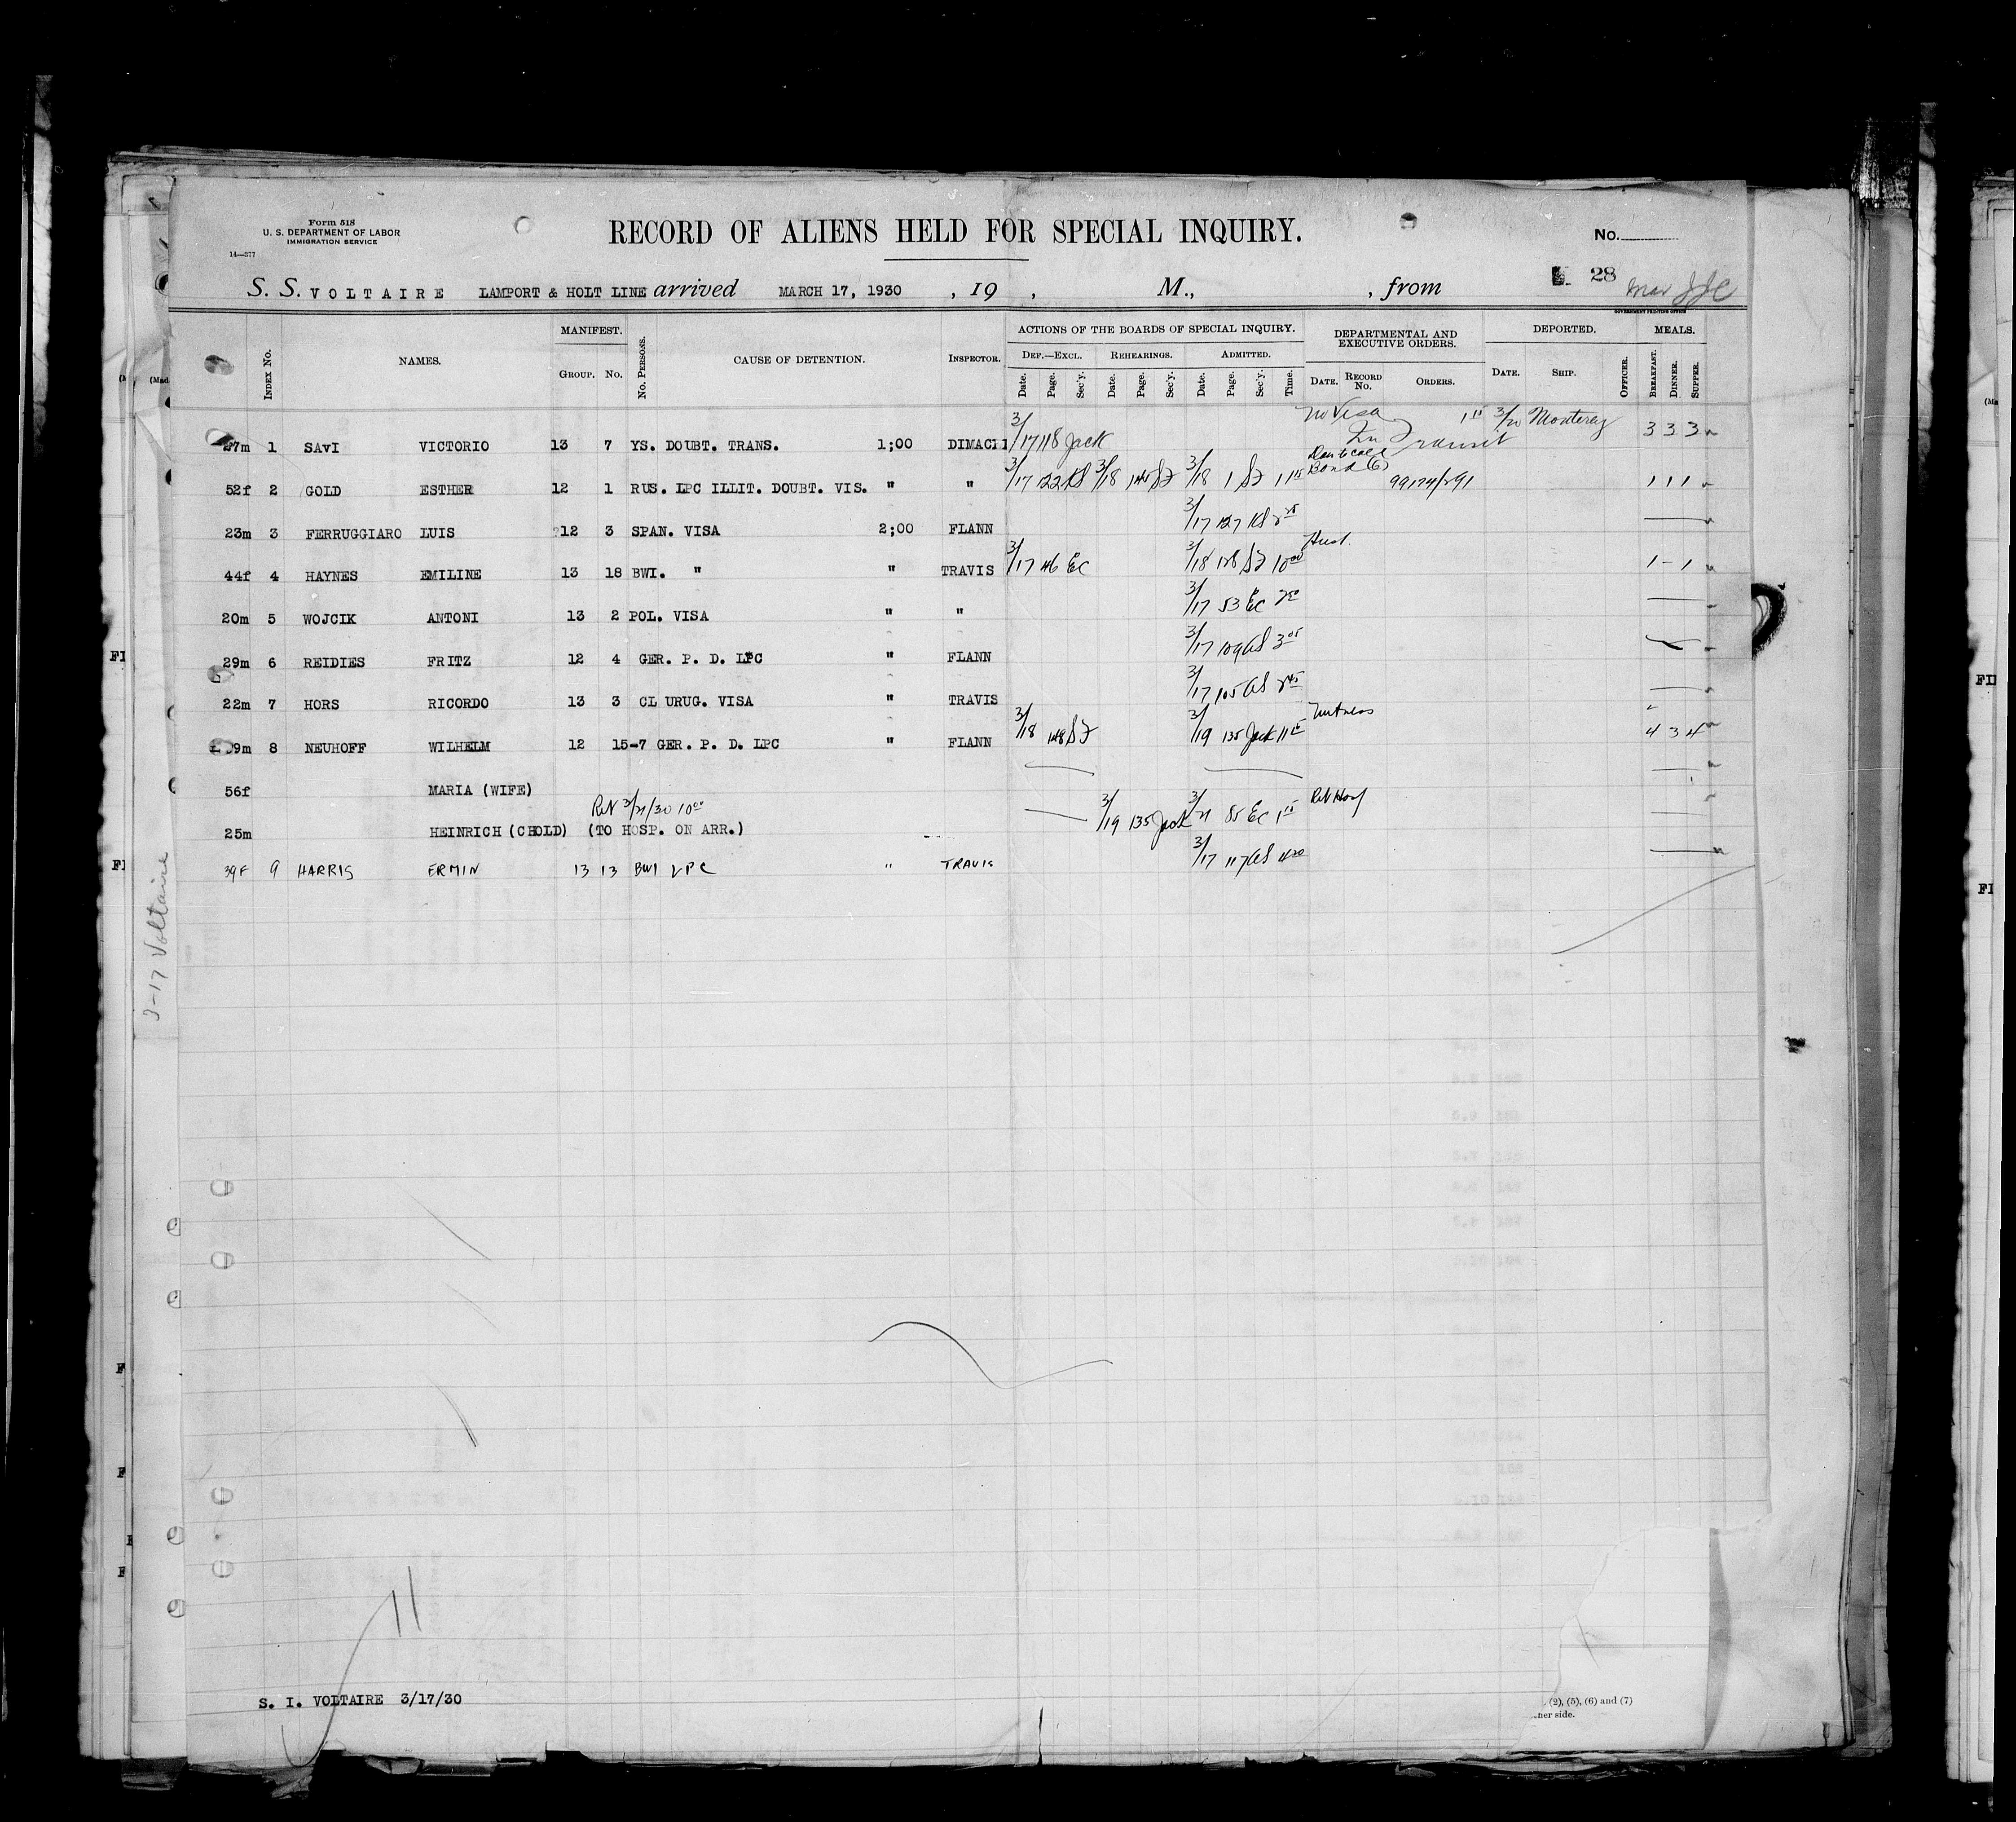 Form 518
U. S. DEPARTMENT OF LABOR
IMMIGRATION SERVICE
14—577
RECORD OF ALIENS HELD FOR SPECIAL INQUIRY.
No.
28
S. S. VOLTAIRE LAMPORT & HOLT LINE arrived MARCH 17, 1930 , 19 , M., , from
GOVERNMENT PRINTING OFFICE
INDEX No. NAMES. MANIFEST. GROUP. No. No. PERSONS. CAUSE OF DETENTION. INSPECTOR. ACTIONS OF THE BOARDS OF SPECIAL INQUIRY. DEPARTMENTAL AND EXECUTIVE ORDERS. DEPORTED. MEALS.
DEF.—EXCL. REHEARINGS. ADMITTED.
Date. Page. Sec'y. Date. Page. Sec'y. Date. Page. Sec'y. Time. DATE. RECORD No. ORDERS. DATE. SHIP. OFFICER. BREAKFAST. DINNER. SUPPER.
No Visa
In Transit
27m 1 SAvI VICTORIO 13 7 YS. DOUBT. TRANS. 1;00 DIMACI 3/17 118 Jack Monterey 3 3 3
Bond
52f 2 GOLD ESTHER 12 1 RUS. LPC ILLIT. DOUBT. VIS. " " 3/17 122 KS 3/18 145 3/18 1 99174/291 1 1 1
23m 3 FERRUGGIARO LUIS 12 3 SPAN. VISA 2;00 FLANN 3/17 127 KS
44f 4 HAYNES EMILINE 13 18 BWI. " " TRAVIS 3/17 46 EC 3/18 128 10 00 Husb. 1 - 1
20m 5 WOJCIK ANTONI 13 2 POL. VISA " " 3/17 53 EC
29m 6 REIDIES FRITZ 12 4 GER. P. D. LPC " FLANN 3/17 109 3 05
22m 7 HORS RICORDO 13 3 CL URUG. VISA " TRAVIS 3/17 105 2 45
59m 8 NEUHOFF WILHELM 12 15-7 GER. P. D. LPC " FLANN 3/18 148 3/19 135 Jack Witness 4 3 4
56f MARIA (WIFE)
Rel 3/21/30 10 00
25m HEINRICH (CHOLD) (TO HOSP. ON ARR.) 3/19 135 Jack 3/21 85 EC Rel Hosp
39F 9 HARRIS ERMIN 13 13 BWI LPC " TRAVIS 3/17 117
3-17 Voltaire
S. I. VOLTAIRE 3/17/30
(2), (5), (6) and (7)
side.